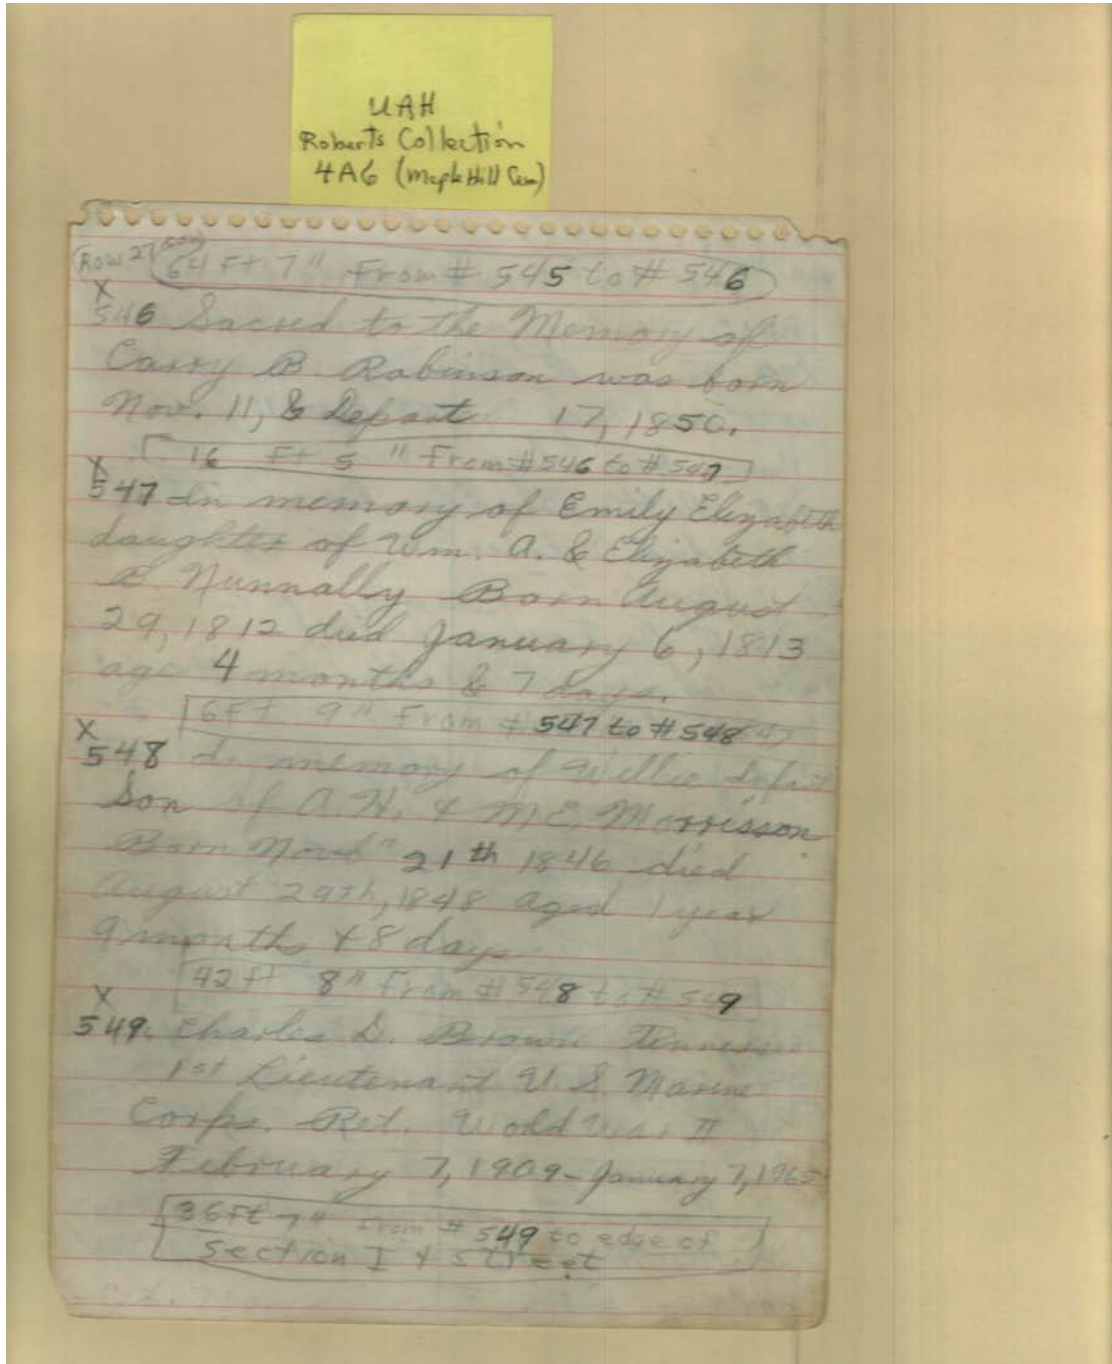 UAH
Roberts Collection
4A6 (Maple Hill Cem)
Row 27
64 Ft 7" From # 545 to # 546
X
546 Sacred to the Memory of
Carry B. Robinson was born
Nov. 11, & Depart 17, 1850.
16 Ft 5 " From # 546 to # 547
X
547 In memory of Emily Elizabeth
daughter of Wm. A. & Elizabeth
B. Nunnally Born August
29, 1812 died January 6, 1813
age 4 months & 7 days.
6 Ft 9" From # 547 to # 548
X
548 In memory of Willie
Son of A. H. & M. E. Morrisson
Born 21th 1846 died
August 29th, 1848 aged 1 year
9 months & 8 days
42 ft 8" From # 548 to # 549
X
549. Charles D. Brown Tennessee
1st Lieutenant U. S. Marine
Corps. Ret. World War II
February 7, 1909 - January 7, 1965
36 ft 7" From # 549 to edge of
Section I & Street